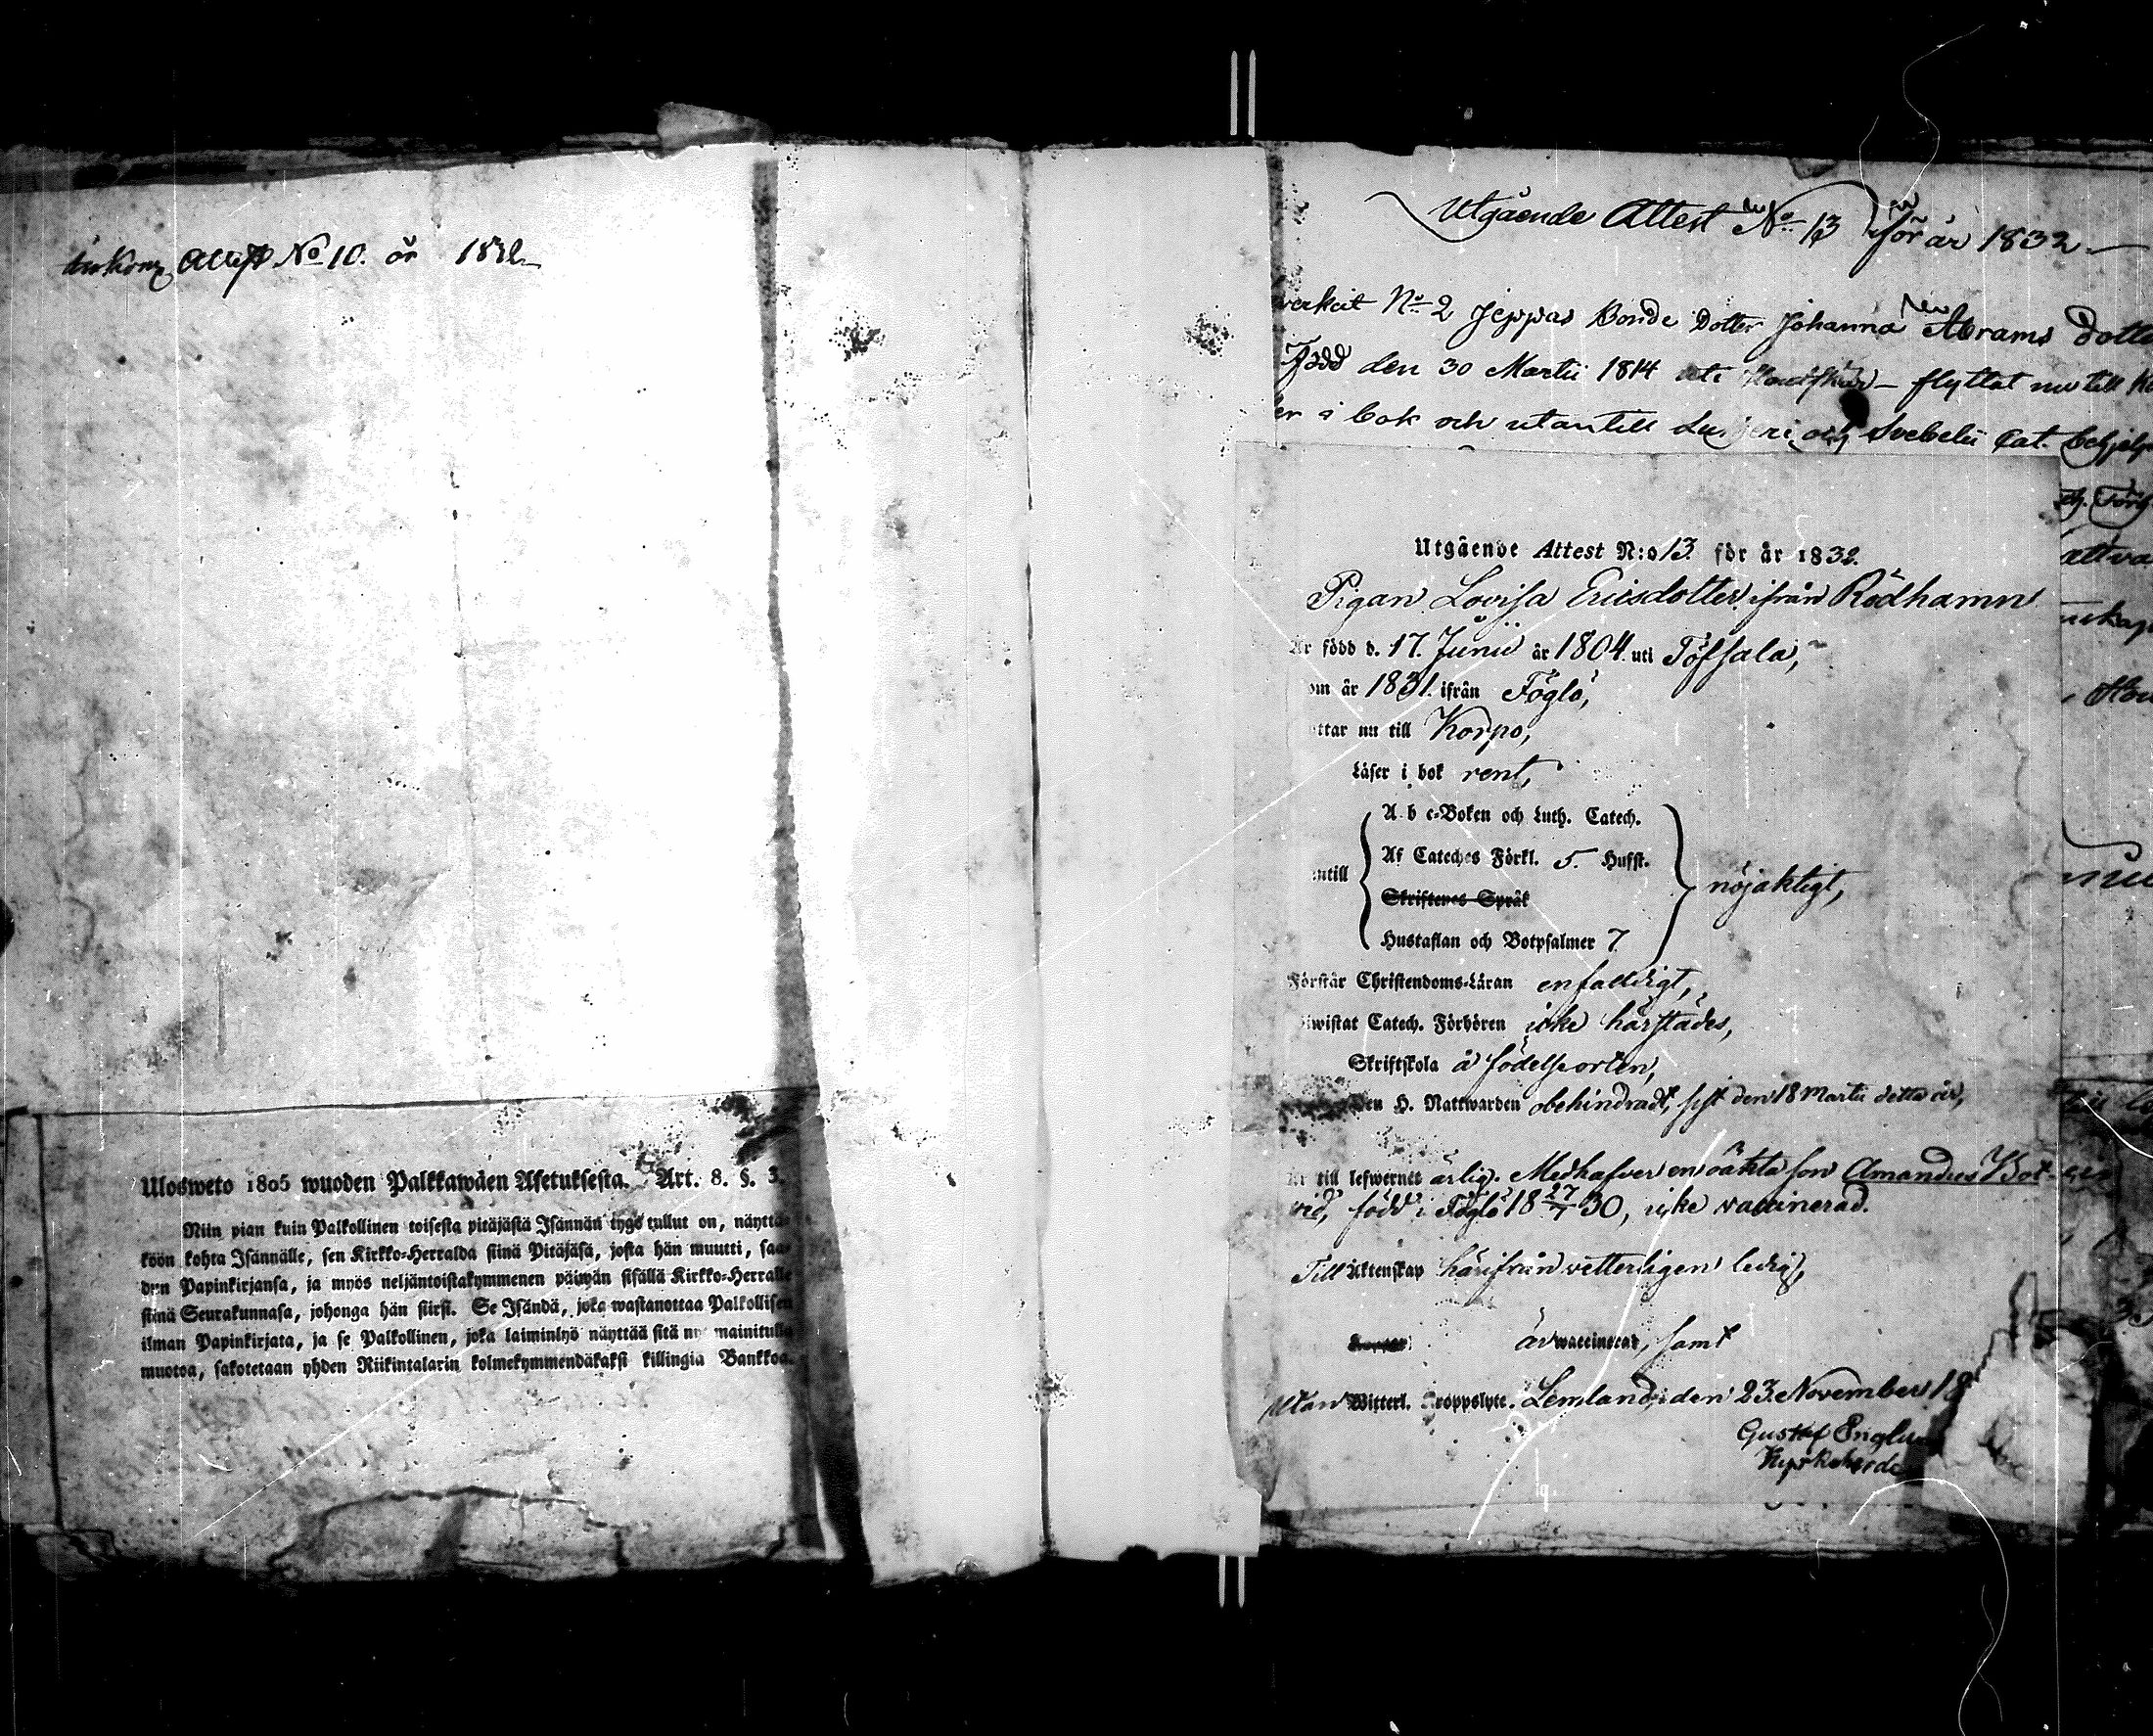 Attest No 10. år 1832
Ulosweto 1805 wuoden Palkkawäen Asetuksesta. Art. 8. §. 3.
Niin pian kuin Palkollinen toisesta pitäjästä Isännän tygö tullut on, näyttä-
köön kohta Isännälle, sen Kirkko-Herralda siinä Pitäjäsä, josta hän muutti, saa-
dun Papinkirjansa, ja myös neljäntoistakymmenen päiwän sisällä Kirkko-Herralle
siinä Seurakunnasa, johonga hän siirsi. Se Isändä, joka wastanottaa Palkollisen
ilman Papinkirjata, ja se Palkollinen, joka laiminlyö näyttää sitä nyt mainitulla
muotoa, sakotetaan yhden Riikintalarin kolmekymmendäkaksi killingiä Bankkoa.
Utgående Attest No 13 för år 1832
No 2 Jeppas Bonde Dotter Johanna Abrams Dotte
Född den 30 Martii 1814 uti flyttat nu till
er i bok och utantill Lutheri och Svebelii Cat. behjelp
Utgående Attest N:o 13. för år 1832.
Pigan Lovisa Ericsdotter ifrån Rödhamn
är född d. 17. Junii år 1804. uti Töfsala,
om år 1831. ifrån Föglö,
ttar nu till Korpo,
Läser i bok rent,
A b c-Boken och Luth. Catech.
Af Cateches Förkl. 5. Hufst.
ntill
Skriftenes Språk
nöjaktigt,
Hustaflan och Botpsalmer 7.
Förstår Christendoms-Läran enfaldigt,
iwistat Catech. Förhören icke härstädes,
Skriftskola å födelseorten,
den H. Nattwarden obehindradt, sist den 18 Martii detta år,
är till lefwernet ärlig. Medhafver en oäkta son Amandus Bot-
vid, född i Föglö 18 27/7 30, icke vaccinerad.
Till Äktenskap härifrån vetterligen ledig,
är waccinerad, samt
utan Witterl. kroppslyte. Lemland, den 23. November 18
Gustaf Englun
Kyrkoherde